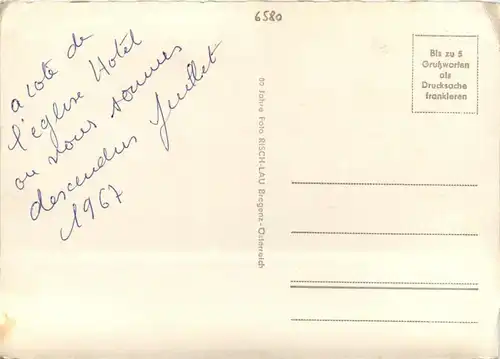 6580
a coté de
l'église Hotel
ou nous sommes
descendus Juillet
1967
60 Jahre Foto RISCH-LAU Bregenz - Österreich
Bis zu 5
Grußworten
als
Drucksache
frankieren